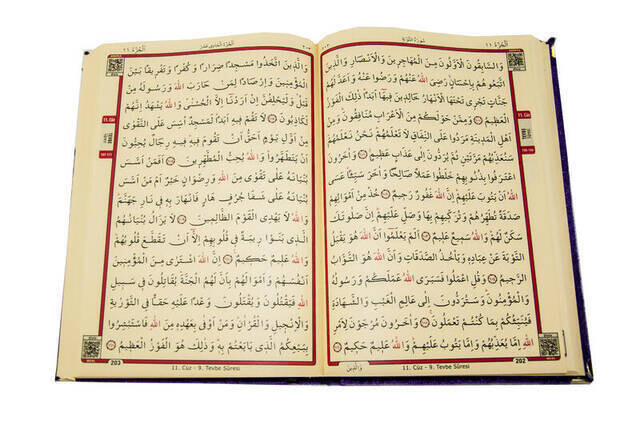 اَلْجُزْءُ ١١
سُورَةُ التَّوْبَةِ
٢٠٢
وَالسَّابِقُونَ الْاَوَّلُونَ مِنَ الْمُهَاجِرِينَ وَالْاَنْصَارِ وَالَّذِينَ
اتَّبَعُوهُمْ بِاِحْسَانٍ رَضِيَ اللّٰهُ عَنْهُمْ وَرَضُوا عَنْهُ وَاَعَدَّ لَهُمْ
جَنَّاتٍ تَجْرِي تَحْتَهَا الْاَنْهَارُ خَالِدِينَ فِيهَا اَبَدًا ذٰلِكَ الْفَوْزُ
الْعَظِيمُ ﴿١٠٠﴾ وَمِمَّنْ حَوْلَكُمْ مِنَ الْاَعْرَابِ مُنَافِقُونَ وَمِنْ
اَهْلِ الْمَدِينَةِ مَرَدُوا عَلَى النِّفَاقِ لَا تَعْلَمُهُمْ نَحْنُ نَعْلَمُهُمْ
سَنُعَذِّبُهُمْ مَرَّتَيْنِ ثُمَّ يُرَدُّونَ اِلٰى عَذَابٍ عَظِيمٍ ﴿١٠١﴾ وَاٰخَرُونَ
اعْتَرَفُوا بِذُنُوبِهِمْ خَلَطُوا عَمَلًا صَالِحًا وَاٰخَرَ سَيِّئًا عَسَى
اللّٰهُ اَنْ يَتُوبَ عَلَيْهِمْ اِنَّ اللّٰهَ غَفُورٌ رَحِيمٌ ﴿١٠٢﴾ خُذْ مِنْ اَمْوَالِهِمْ
صَدَقَةً تُطَهِّرُهُمْ وَتُزَكِّيهِمْ بِهَا وَصَلِّ عَلَيْهِمْ اِنَّ صَلٰوتَكَ
سَكَنٌ لَهُمْ وَاللّٰهُ سَمِيعٌ عَلِيمٌ ﴿١٠٣﴾ اَلَمْ يَعْلَمُوا اَنَّ اللّٰهَ هُوَ يَقْبَلُ
التَّوْبَةَ عَنْ عِبَادِهِ وَيَأْخُذُ الصَّدَقَاتِ وَاَنَّ اللّٰهَ هُوَ التَّوَّابُ
الرَّحِيمُ ﴿١٠٤﴾ وَقُلِ اعْمَلُوا فَسَيَرَى اللّٰهُ عَمَلَكُمْ وَرَسُولُهُ
وَالْمُؤْمِنُونَ وَسَتُرَدُّونَ اِلٰى عَالِمِ الْغَيْبِ وَالشَّهَادَةِ
فَيُنَبِّئُكُمْ بِمَا كُنْتُمْ تَعْمَلُونَ ﴿١٠٥﴾ وَاٰخَرُونَ مُرْجَوْنَ لِاَمْرِ
اللّٰهِ اِمَّا يُعَذِّبُهُمْ وَاِمَّا يَتُوبُ عَلَيْهِمْ وَاللّٰهُ عَلِيمٌ حَكِيمٌ ﴿١٠٦﴾
وَالَّذِينَ
202
11. Cüz - 9. Tevbe Sûresi
11. Cüz
اَلْجُزْءُ الْحَادِي عَشَرَ
٢٠٣
اَلْجُزْءُ ١١
وَالَّذِينَ اتَّخَذُوا مَسْجِدًا ضِرَارًا وَكُفْرًا وَتَفْرِيقًا بَيْنَ
الْمُؤْمِنِينَ وَاِرْصَادًا لِمَنْ حَارَبَ اللّٰهَ وَرَسُولَهُ مِنْ
قَبْلُ وَلَيَحْلِفُنَّ اِنْ اَرَدْنَا اِلَّا الْحُسْنٰى وَاللّٰهُ يَشْهَدُ اِنَّهُمْ
لَكَاذِبُونَ ﴿١٠٧﴾ لَا تَقُمْ فِيهِ اَبَدًا لَمَسْجِدٌ اُسِّسَ عَلَى التَّقْوٰى
مِنْ اَوَّلِ يَوْمٍ اَحَقُّ اَنْ تَقُومَ فِيهِ فِيهِ رِجَالٌ يُحِبُّونَ
اَنْ يَتَطَهَّرُوا وَاللّٰهُ يُحِبُّ الْمُطَّهِّرِينَ ﴿١٠٨﴾ اَفَمَنْ اَسَّسَ
بُنْيَانَهُ عَلٰى تَقْوٰى مِنَ اللّٰهِ وَرِضْوَانٍ خَيْرٌ اَمْ مَنْ اَسَّسَ
بُنْيَانَهُ عَلٰى شَفَا جُرُفٍ هَارٍ فَانْهَارَ بِهِ فِي نَارِ جَهَنَّمَ
وَاللّٰهُ لَا يَهْدِي الْقَوْمَ الظَّالِمِينَ ﴿١٠٩﴾ لَا يَزَالُ بُنْيَانُهُمُ
الَّذِي بَنَوْا رِيبَةً فِي قُلُوبِهِمْ اِلَّا اَنْ تَقَطَّعَ قُلُوبُهُمْ
وَاللّٰهُ عَلِيمٌ حَكِيمٌ ﴿١١٠﴾ اِنَّ اللّٰهَ اشْتَرٰى مِنَ الْمُؤْمِنِينَ
اَنْفُسَهُمْ وَاَمْوَالَهُمْ بِاَنَّ لَهُمُ الْجَنَّةَ يُقَاتِلُونَ فِي سَبِيلِ
اللّٰهِ فَيَقْتُلُونَ وَيُقْتَلُونَ وَعْدًا عَلَيْهِ حَقًّا فِي التَّوْرٰيةِ
وَالْاِنْجِيلِ وَالْقُرْاٰنِ وَمَنْ اَوْفٰى بِعَهْدِهِ مِنَ اللّٰهِ فَاسْتَبْشِرُوا
بِبَيْعِكُمُ الَّذِي بَايَعْتُمْ بِهِ وَذٰلِكَ هُوَ الْفَوْزُ الْعَظِيمُ ﴿١١١﴾
203
11. Cüz - 9. Tevbe Sûresi
11. Cüz